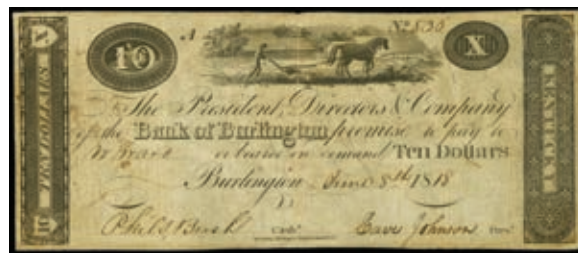 X
TEN DOLLARS
10
10
A
No
X
KENTUCKY
The President, Directors & Company
of the Bank of Burlington promise to pay to
or bearer on demand Ten Dollars
Burlington June 8th 1818
Cashr.
Johnson Prest.